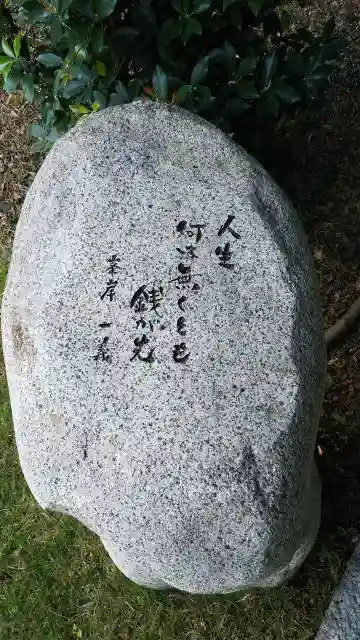 人生
何は無くとも
銭が先
峯岸 一義